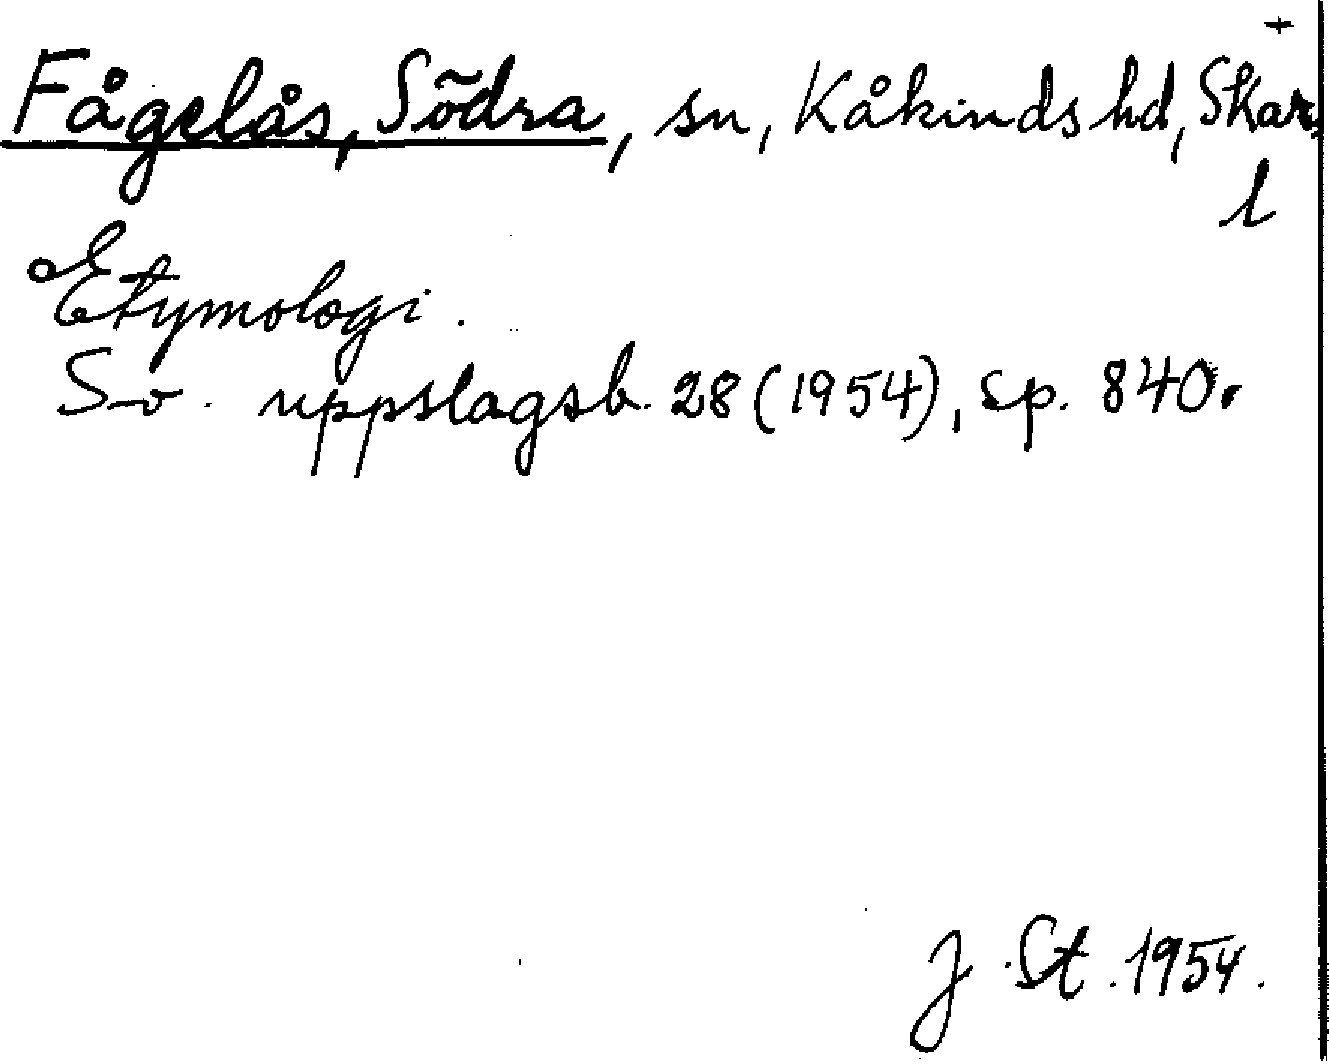 +
Fågelås, Södra, sn, Kåkinds hd, Skar.
l
Etymologi.
Sv. uppslagsb. 28 (1954), sp. 840.
J. St. 1954.